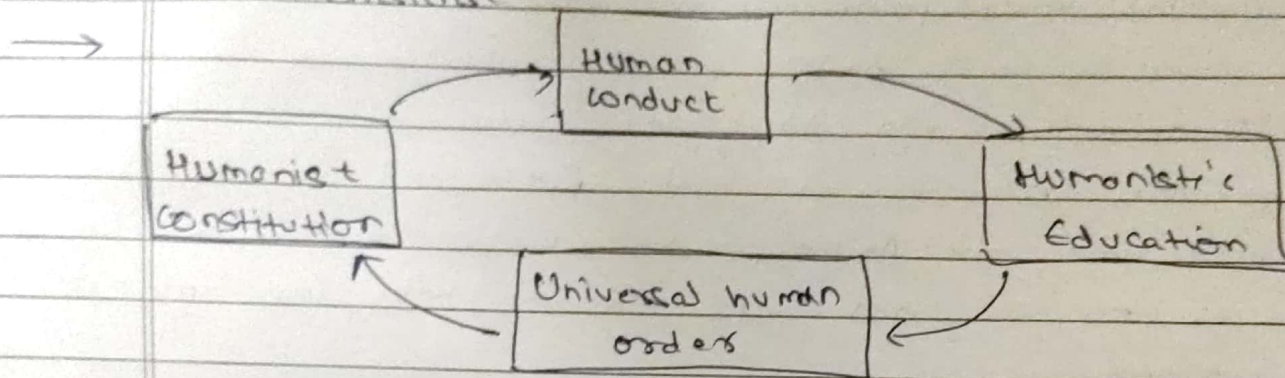 Human
conduct
Humanist
constitution
Humanistic
Education
Universal human
order